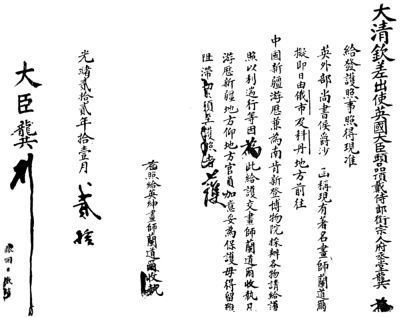 大清欽差出使英國大臣頭品頂戴侍郎銜宗人府堂龔 為
給發護照事照得現准
英外部尚書侯爵沙 函稱現有著名畫師蘭道爾
擬即日由俄市及科丹地方前往
中國新疆游歷兼為南肯新登博物院採辦各物請給護
照以利遄行等因為此給護交畫師蘭道爾收執凡
游歷新疆地方仰地方官員加應妥為保護毋得留難
阻滯 須至護照者 護
右照給英紳畫師蘭道爾收執
光緒貳拾貳年拾壹月 貳拾
大臣龔